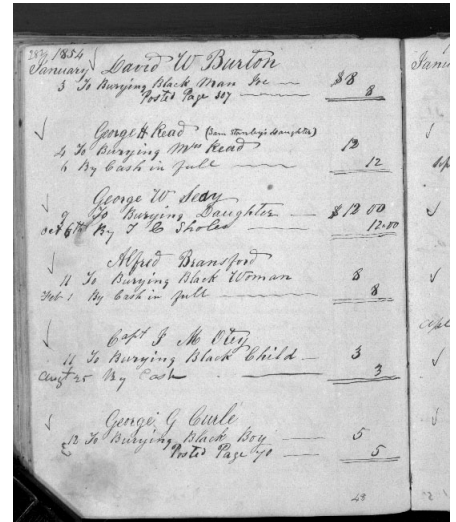 1854
January David W Burton
3 To Burying Black Man $8
Posted Page 307 8
George H Read (Sam Stanley's daughter)
4 To Burying Mrs Read 12
By Cash in full 12
George W
9 To Burying Daughter $12 00
By T E 12.00
Alfred Bransford
11 To Burying Black Woman 8
Feb 1 By Cash in full 8
Capt J M Otey
11 To Burying Black Child 3
Augt 25 By Cash 3
George G Curle
12 To Burying Black Boy 5
Posted Page 70 5